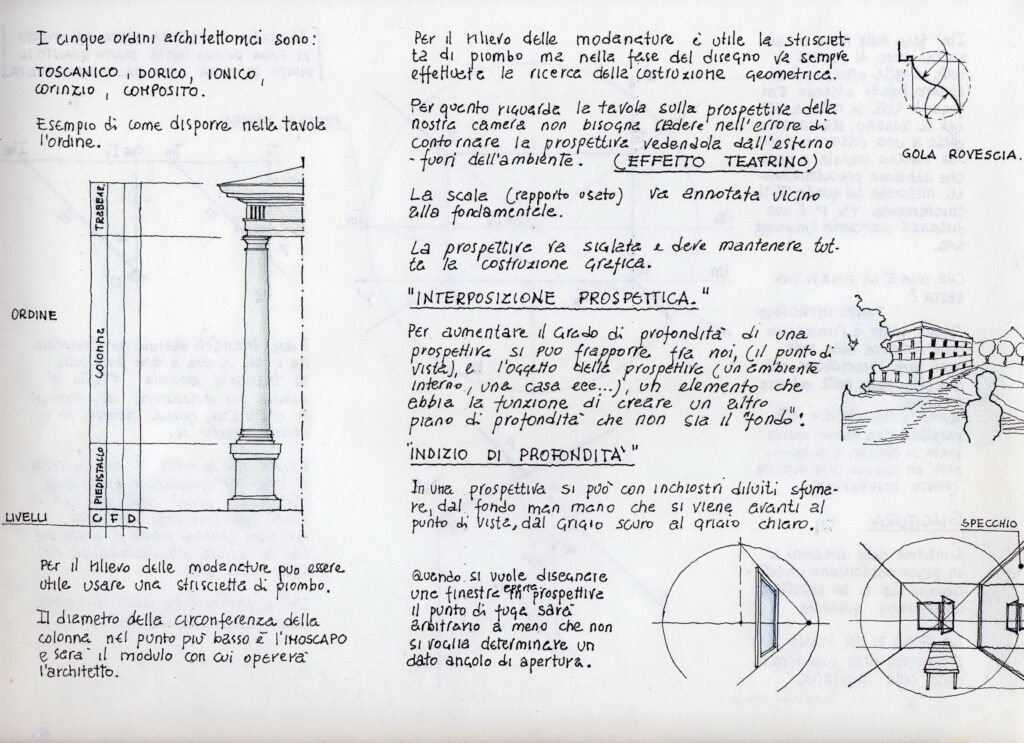 I cinque ordini architettonici sono:
TOSCANICO, DORICO, IONICO,
CORINZIO, COMPOSITO.
Esempio di come disporre nella tavola
l'ordine.
TRABEAZ.
ORDINE
COLONNA
PIEDISTALLO
LIVELLI
C F D
Per il rilievo delle modanature può essere
utile usare una striscietta di piombo.
Il diametro della circonferenza della
colonna nel punto più basso è l'IMOSCAPO
e sarà il modulo con cui opererà
l'architetto.
Per il rilievo delle modanature è utile la strisciet-
ta di piombo ma nella fase del disegno va sempre
effettuata la ricerca della costruzione geometrica.
Per quanto riguarda la tavola sulla prospettiva della
nostra camera non bisogna cadere nell'errore di
contornare la prospettiva vedendola dall'esterno
- fuori dell'ambiente. (EFFETTO TEATRINO)
La scala (rapporto usato) va annotata vicino
alla fondamentale.
La prospettiva va siglata e deve mantenere tut-
ta la costruzione grafica.
"INTERPOSIZIONE PROSPETTICA."
Per aumentare il grado di profondità di una
prospettiva si può frapporre fra noi, (il punto di
vista), e l'oggetto della prospettiva (un ambiente
interno, una casa ecc...), un elemento che
abbia la funzione di creare un altro
piano di profondità che non sia il "fondo".
"INDIZIO DI PROFONDITÀ"
In una prospettiva si può con inchiostri diluiti sfuma-
re, dal fondo man mano che si viene avanti al
punto di vista, dal grigio scuro al grigio chiaro.
Quando si vuole disegnare
una finestra aperta in prospettiva
il punto di fuga sarà
arbitrario a meno che non
si voglia determinare un
dato angolo di apertura.
GOLA ROVESCIA.
SPECCHIO